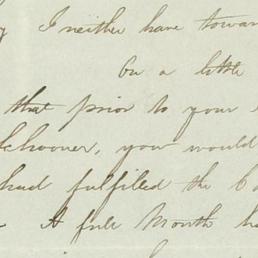 I neither have towar
On a little
that prior to your
Schooner, you would
had fulfilled the C
A full Month ha